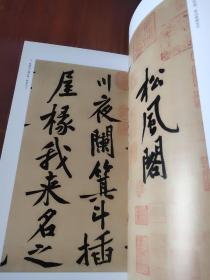 松風閣
川夜闌箕斗插
屋椽我來名之